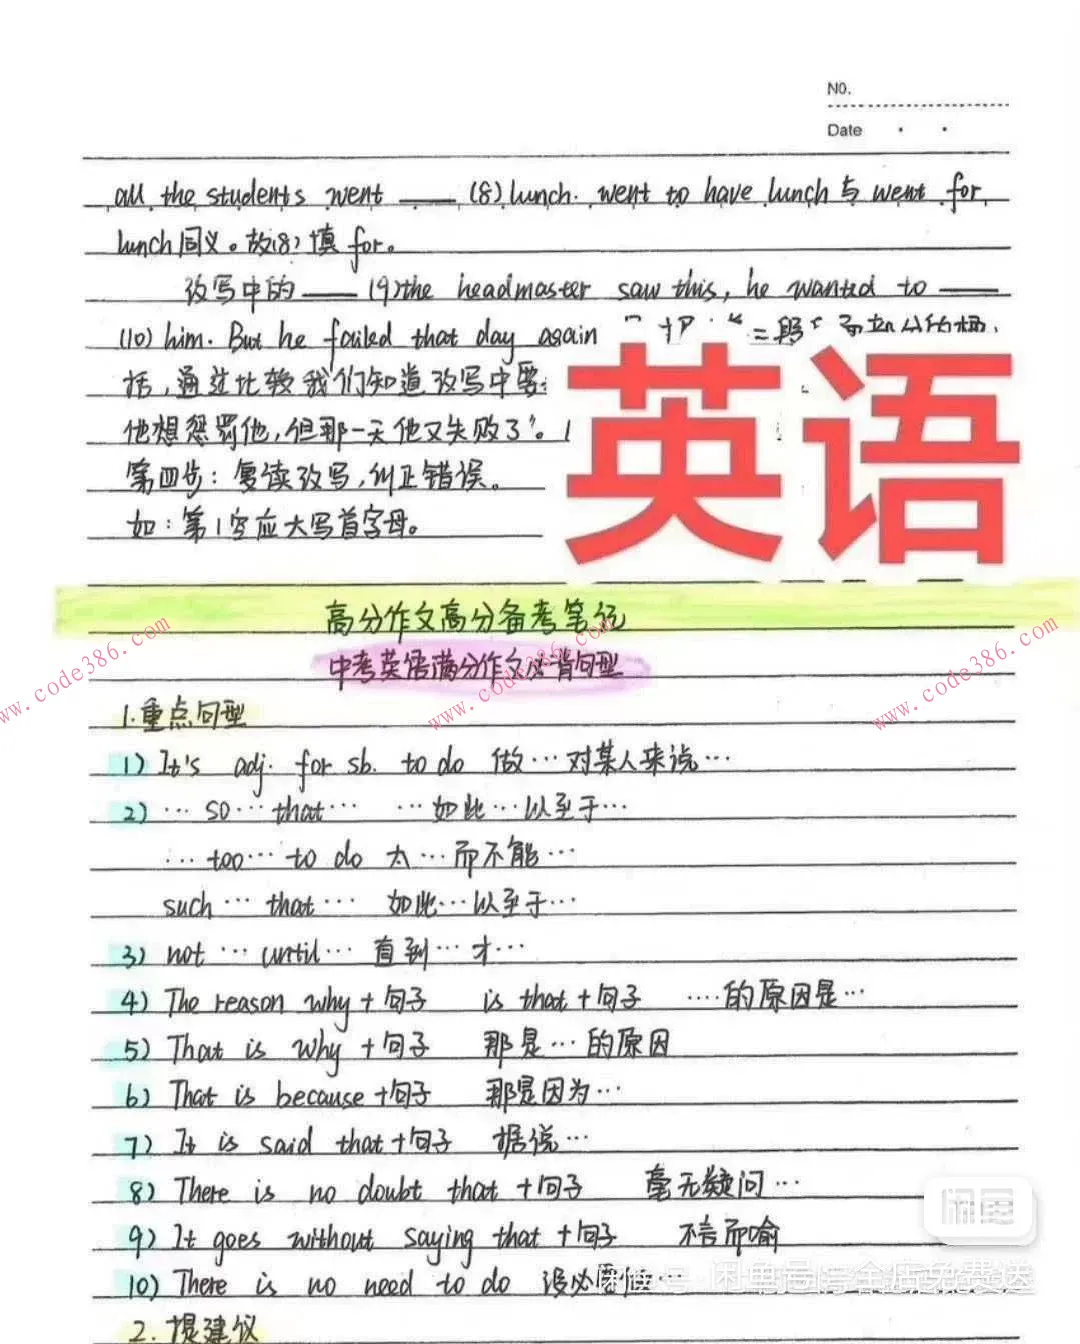 NO.
Date
all the students went ____ (8) lunch. went to have lunch 与 went for
lunch同义。故(8)填 for。
改写中的 ____ (9) the headmaster saw this, he wanted to ____
(10) him. But he failed that day again
括,通过比较我们知道改写中要
他想惩罚他,但那一天他又失败了"。
第四步:复读改写,纠正错误。
如:第1空应大写首字母。
英语
高分作文高分备考笔记
中考英语满分作文必背句型
www.code386.com
www.code386.com
www.code386.com
1.重点句型
1) It's adj. for sb. to do 做…对某人来说…
2) … so … that … …如此…以至于…
… too … to do 太…而不能…
such … that … 如此…以至于…
3) not … until … 直到…才…
4) The reason why+句子 is that+句子 ….的原因是…
5) That is why +句子 那是…的原因
6) That is because+句子 那是因为…
7) It is said that+句子 据说…
8) There is no doubt that +句子 毫无疑问…
9) It goes without saying that+句子 不言而喻
10) There is no need to do 没必要做…
闲鱼
2.提建议